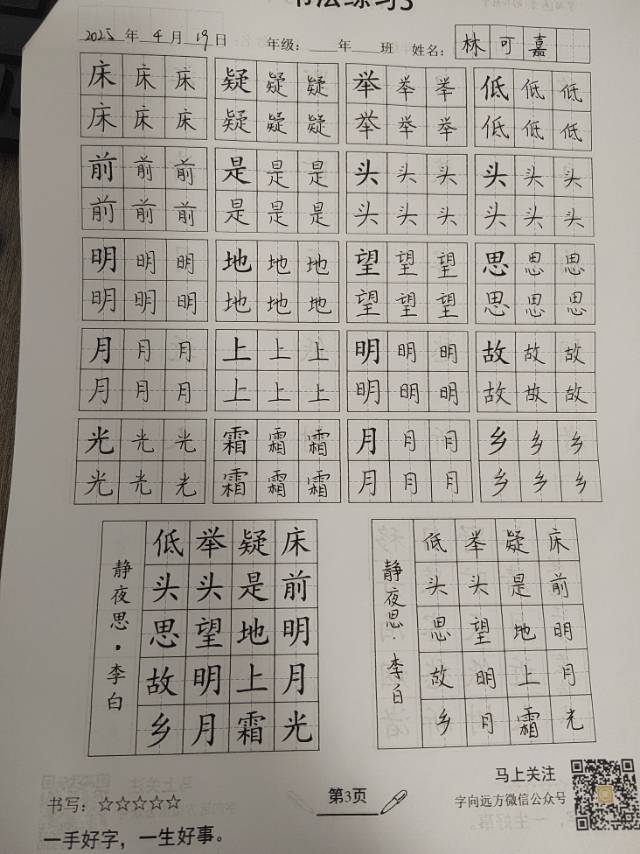 书法练习3
2025 年 4 月 19 日 年级: 年 班 姓名: 林可嘉
床床床 疑疑疑 举举举 低低低
床床床 疑疑疑 举举举 低低低
前前前 是是是 头头头 头头头
前前前 是是是 头头头 头头头
明明明 地地地 望望望 思思思
明明明 地地地 望望望 思思思
月月月 上上上 明明明 故故故
月月月 上上上 明明明 故故故
光光光 霜霜霜 月月月 乡乡乡
光光光 霜霜霜 月月月 乡乡乡
静夜思·李白
床前明月光
疑是地上霜
举头望明月
低头思故乡
静夜思·李白
床前明月光
疑是地上霜
举头望明月
低头思故乡
书写: ☆☆☆☆☆
一手好字，一生好事。
第3页
马上关注
字向远方微信公众号